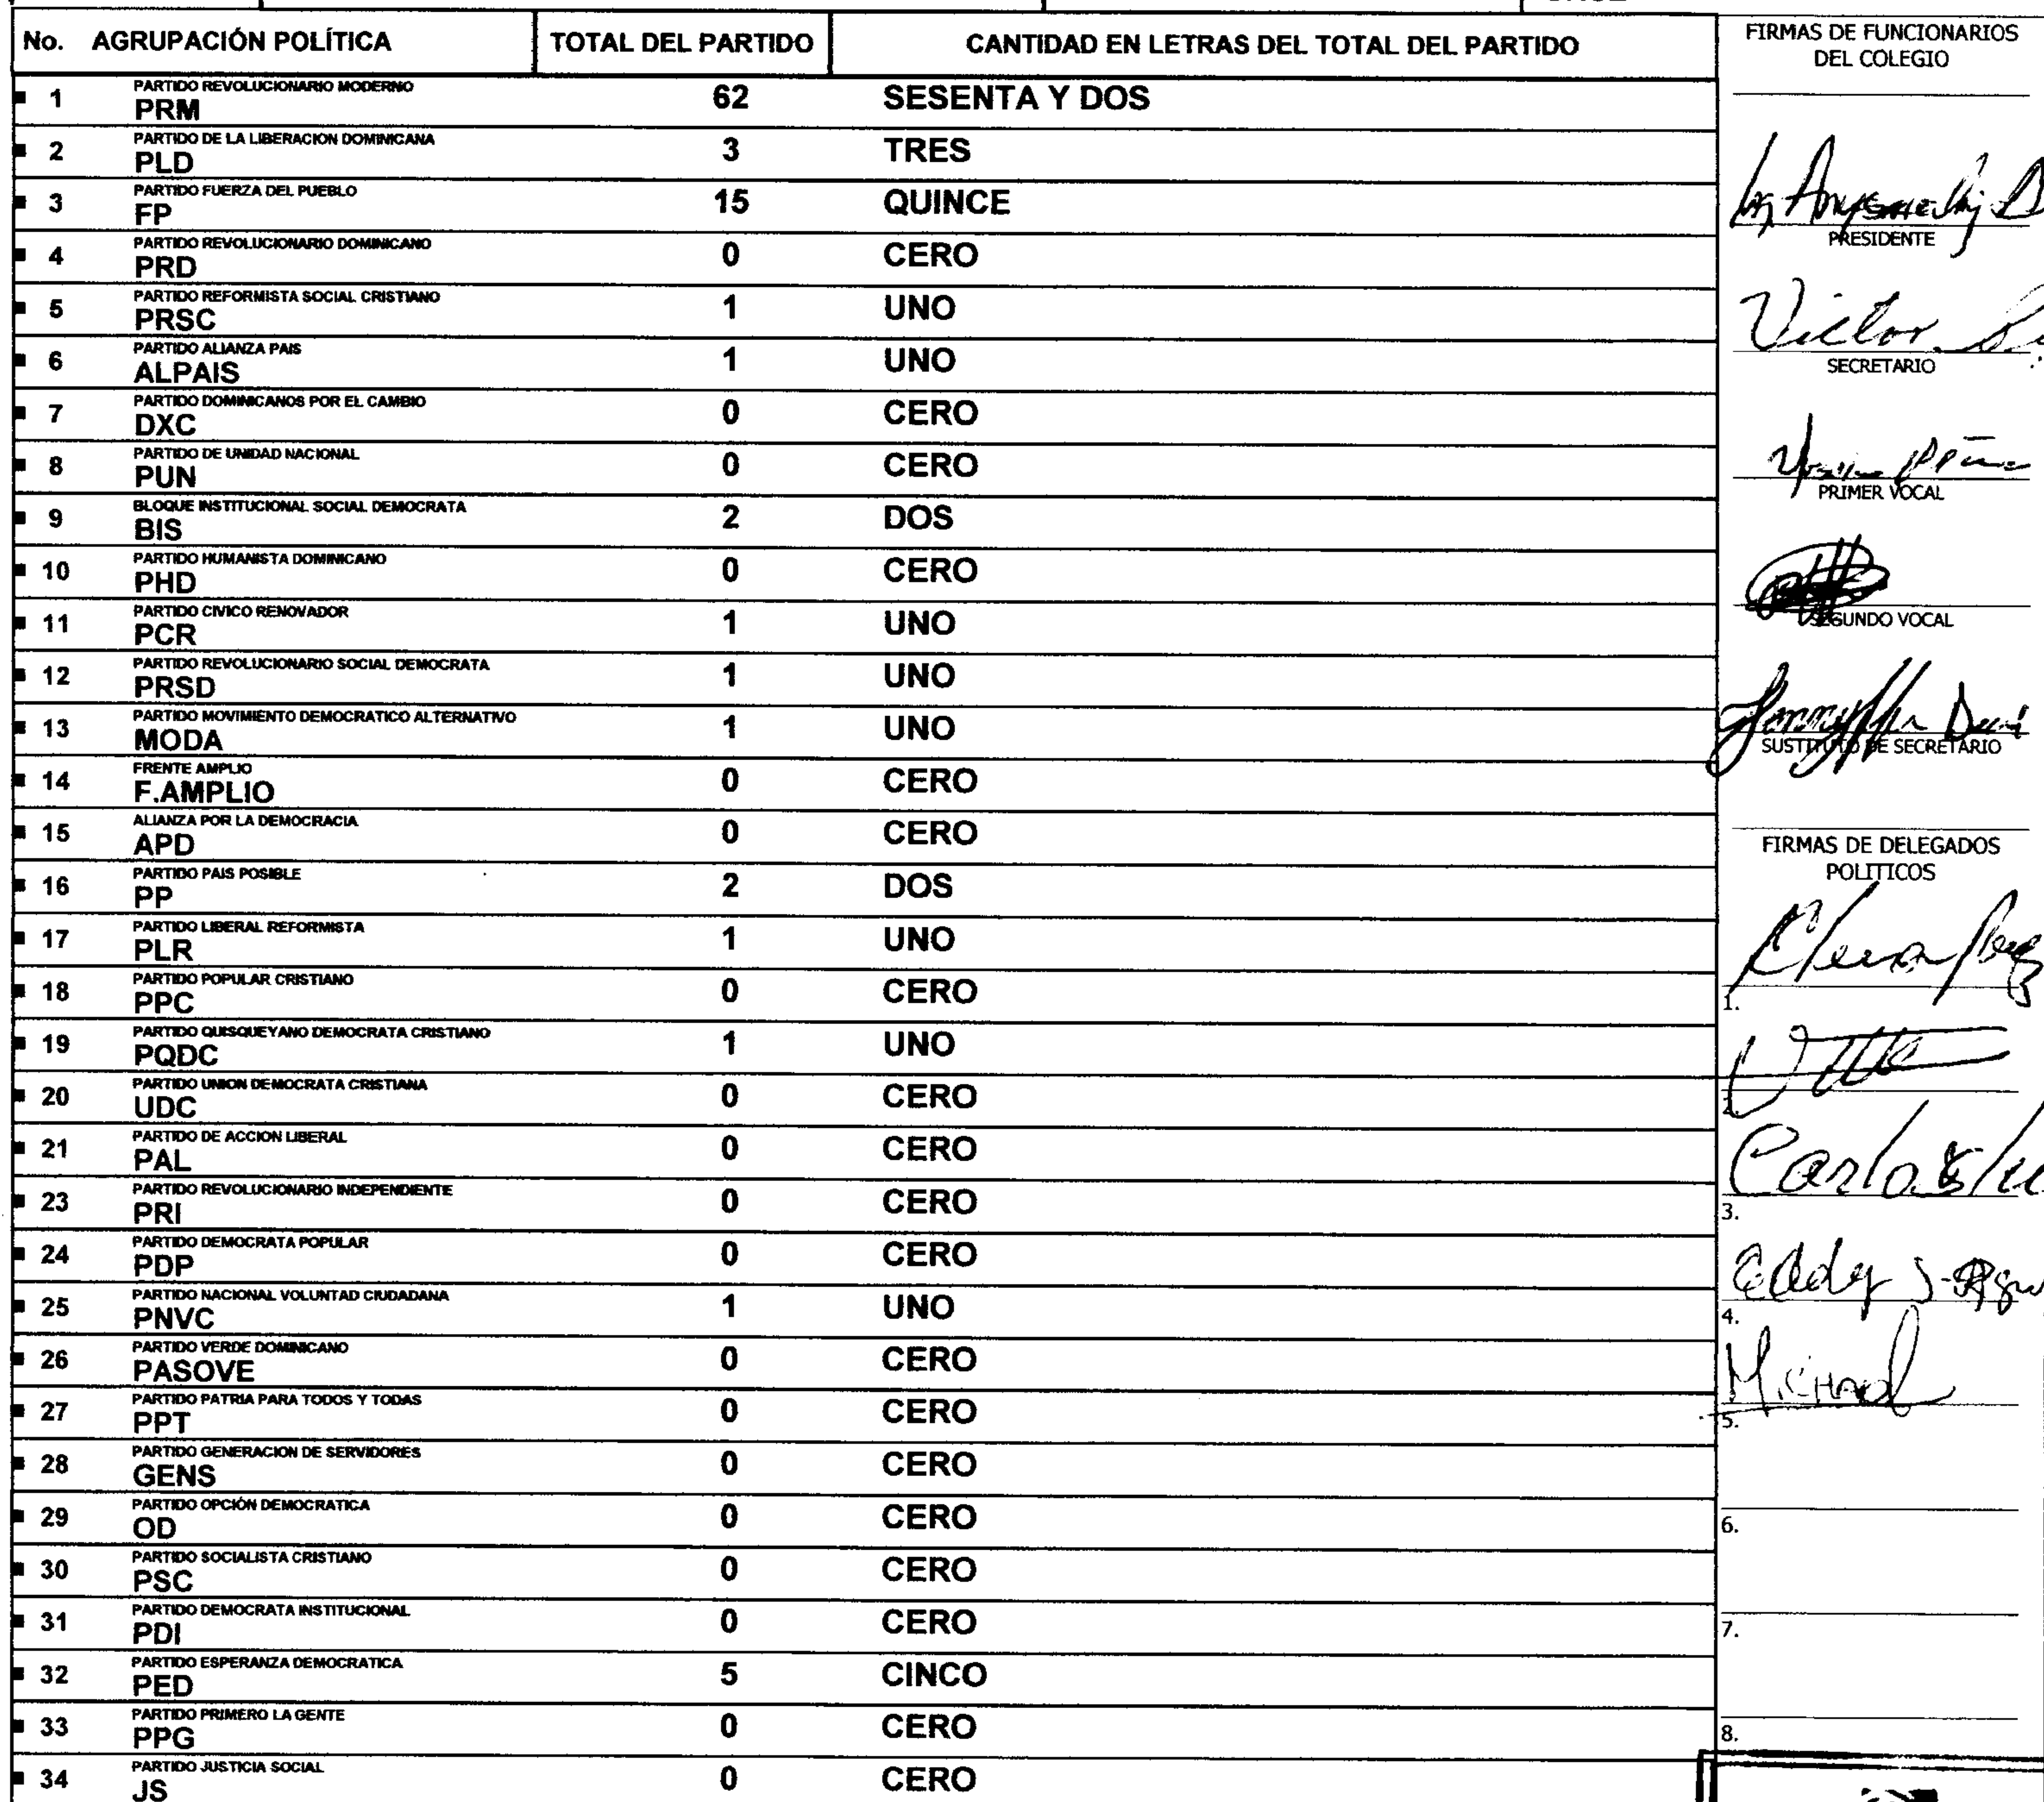 No. AGRUPACIÓN POLÍTICA TOTAL DEL PARTIDO CANTIDAD EN LETRAS DEL TOTAL DEL PARTIDO
PARTIDO REVOLUCIONARIO MODERNO
1 PRM 62 SESENTA Y DOS
PARTIDO DE LA LIBERACION DOMINICANA
2 PLD 3 TRES
PARTIDO FUERZA DEL PUEBLO
3 FP 15 QUINCE
PARTIDO REVOLUCIONARIO DOMINICANO
4 PRD 0 CERO
PARTIDO REFORMISTA SOCIAL CRISTIANO
5 PRSC 1 UNO
PARTIDO ALIANZA PAIS
6 ALPAIS 1 UNO
PARTIDO DOMINICANOS POR EL CAMBIO
7 DXC 0 CERO
PARTIDO DE UNIDAD NACIONAL
8 PUN 0 CERO
BLOQUE INSTITUCIONAL SOCIAL DEMOCRATA
9 BIS 2 DOS
PARTIDO HUMANISTA DOMINICANO
10 PHD 0 CERO
PARTIDO CIVICO RENOVADOR
11 PCR 1 UNO
PARTIDO REVOLUCIONARIO SOCIAL DEMOCRATA
12 PRSD 1 UNO
PARTIDO MOVIMIENTO DEMOCRATICO ALTERNATIVO
13 MODA 1 UNO
FRENTE AMPLIO
14 F.AMPLIO 0 CERO
ALIANZA POR LA DEMOCRACIA
15 APD 0 CERO
PARTIDO PAIS POSIBLE
16 PP 2 DOS
PARTIDO LIBERAL REFORMISTA
17 PLR 1 UNO
PARTIDO POPULAR CRISTIANO
18 PPC 0 CERO
PARTIDO QUISQUEYANO DEMOCRATA CRISTIANO
19 PQDC 1 UNO
PARTIDO UNION DEMOCRATA CRISTIANA
20 UDC 0 CERO
PARTIDO DE ACCION LIBERAL
21 PAL 0 CERO
PARTIDO REVOLUCIONARIO INDEPENDIENTE
23 PRI 0 CERO
PARTIDO DEMOCRATA POPULAR
24 PDP 0 CERO
PARTIDO NACIONAL VOLUNTAD CIUDADANA
25 PNVC 1 UNO
PARTIDO VERDE DOMINICANO
26 PASOVE 0 CERO
PARTIDO PATRIA PARA TODOS Y TODAS
27 PPT 0 CERO
PARTIDO GENERACION DE SERVIDORES
28 GENS 0 CERO
PARTIDO OPCIÓN DEMOCRATICA
29 OD 0 CERO
PARTIDO SOCIALISTA CRISTIANO
30 PSC 0 CERO
PARTIDO DEMOCRATA INSTITUCIONAL
31 PDI 0 CERO
PARTIDO ESPERANZA DEMOCRATICA
32 PED 5 CINCO
PARTIDO PRIMERO LA GENTE
33 PPG 0 CERO
PARTIDO JUSTICIA SOCIAL
34 JS 0 CERO
FIRMAS DE FUNCIONARIOS
DEL COLEGIO
PRESIDENTE
Victor
SECRETARIO
PRIMER VOCAL
SEGUNDO VOCAL
SUSTITUTO DE SECRETARIO
FIRMAS DE DELEGADOS
POLITICOS
1.
2.
Carlos
3.
Eddy
4.
Michael
5.
6.
7.
8.